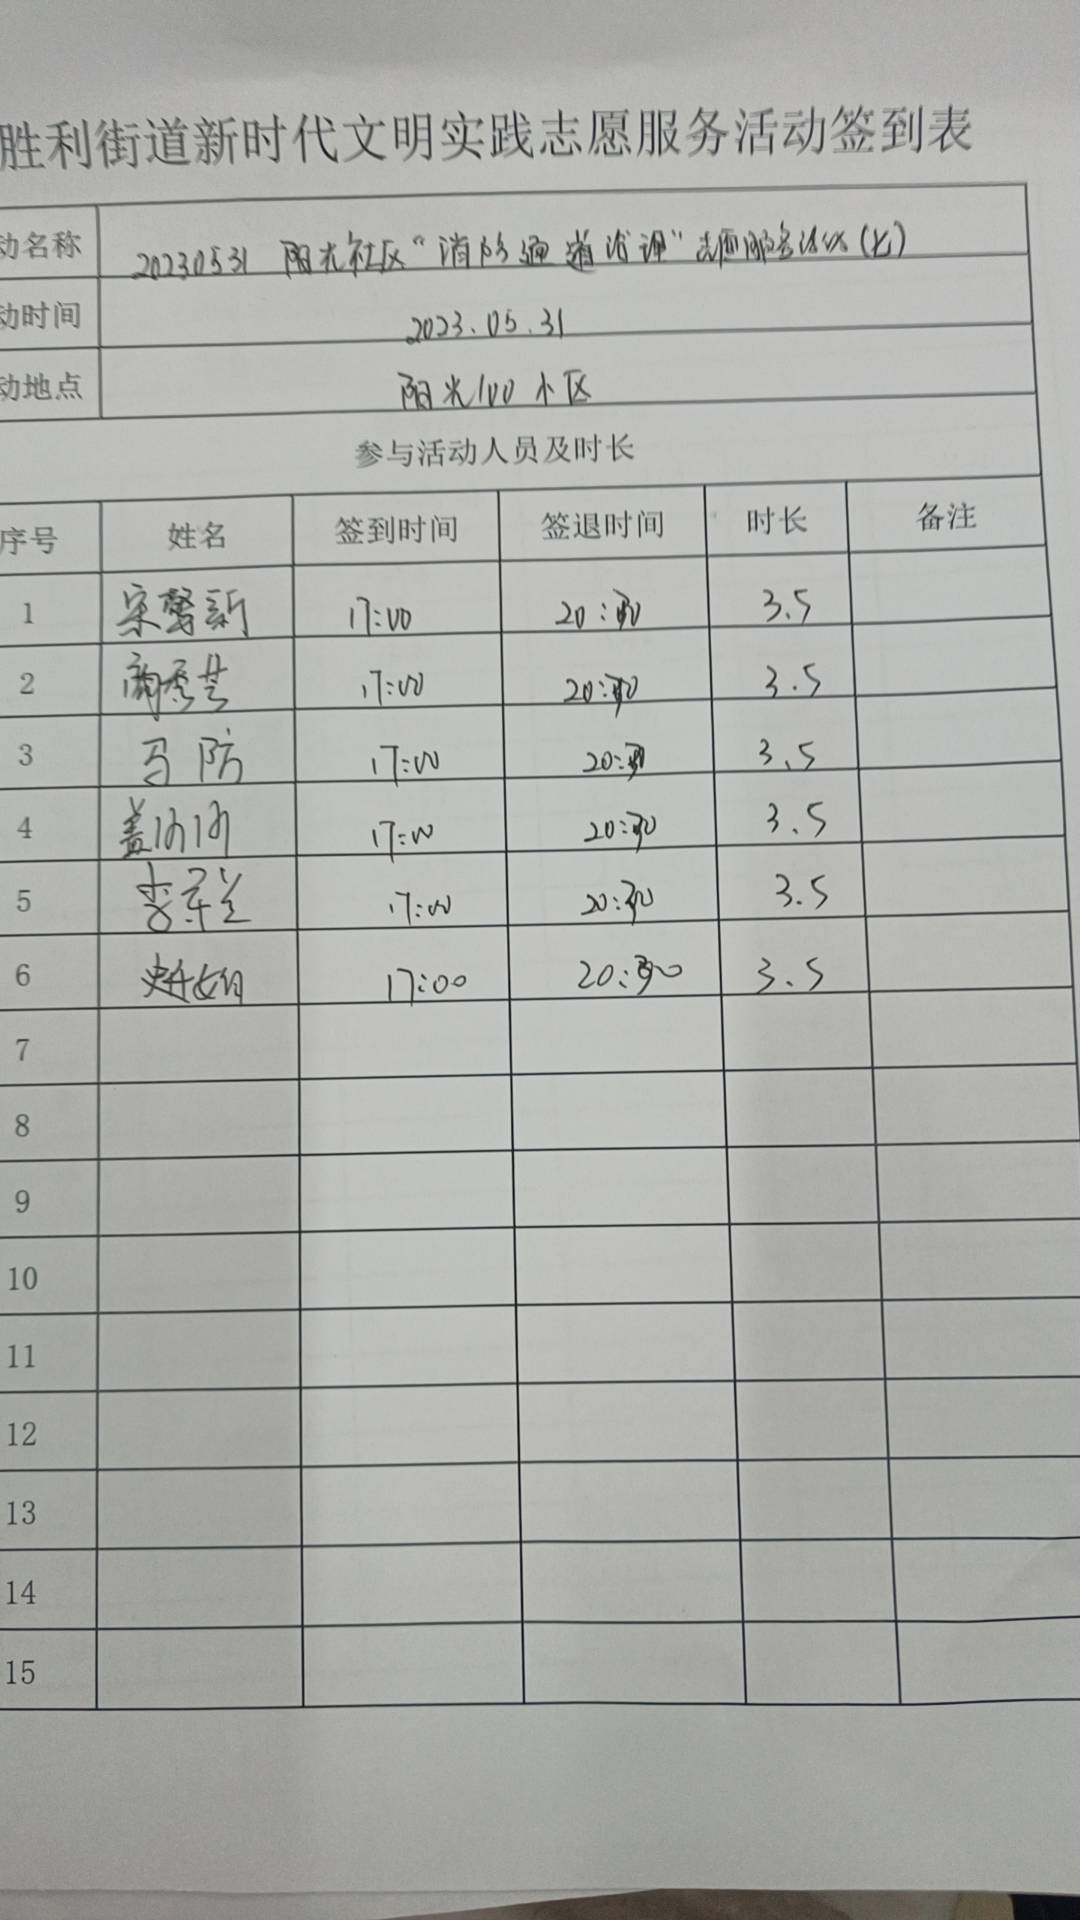 胜利街道新时代文明实践志愿服务活动签到表
动名称 20230531 阳光社区“消防通道治理”志愿服务活动(七)
动时间 2023.05.31
动地点 阳光100小区
参与活动人员及时长
序号 姓名 签到时间 签退时间 时长 备注
1 宋馨新 17:00 20:30 3.5
2 17:00 20:30 3.5
3 马防 17:00 20:30 3.5
4 盖 17:00 20:30 3.5
5 李 17:00 20:30 3.5
6 17:00 20:30 3.5
7
8
9
10
11
12
13
14
15